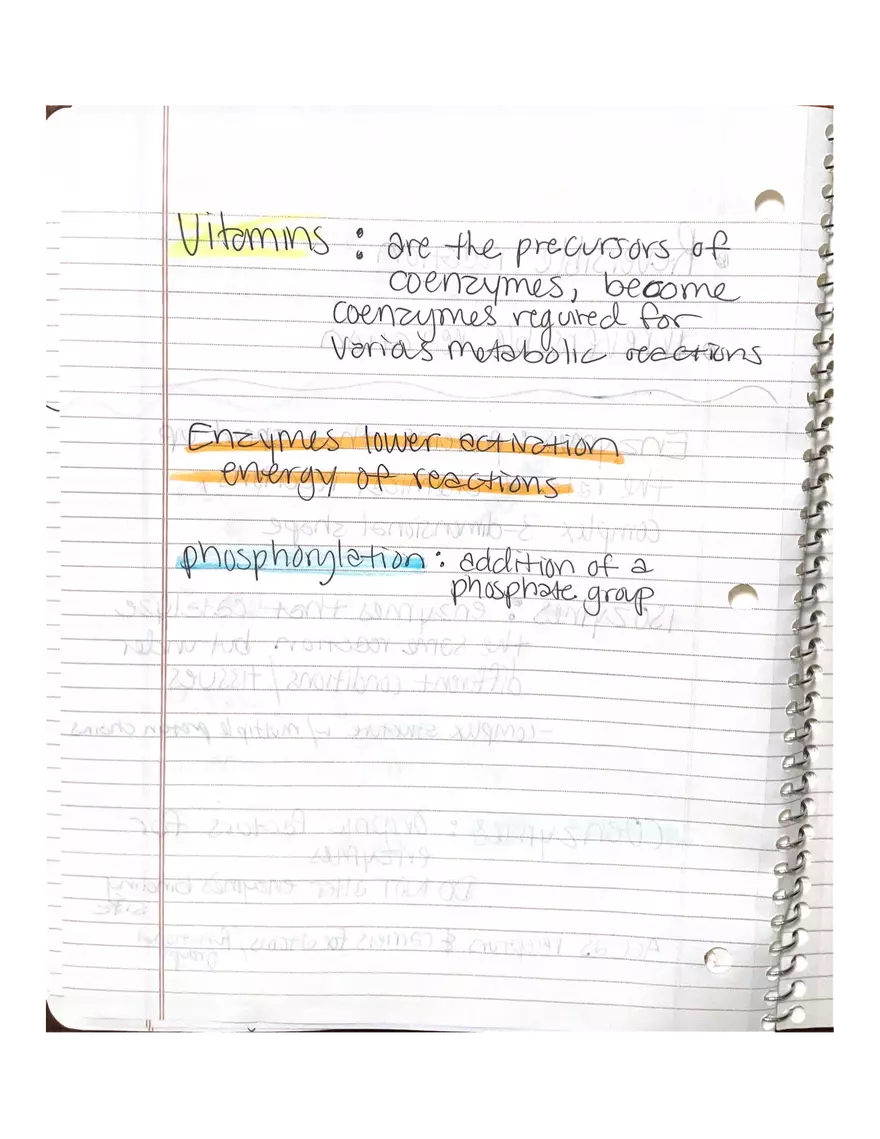 Vitamins : are the precursors of
coenzymes, become
coenzymes required for
various metabolic reactions
Enzymes lower activation
energy of reactions
phosphorylation : addition of a
phosphate group